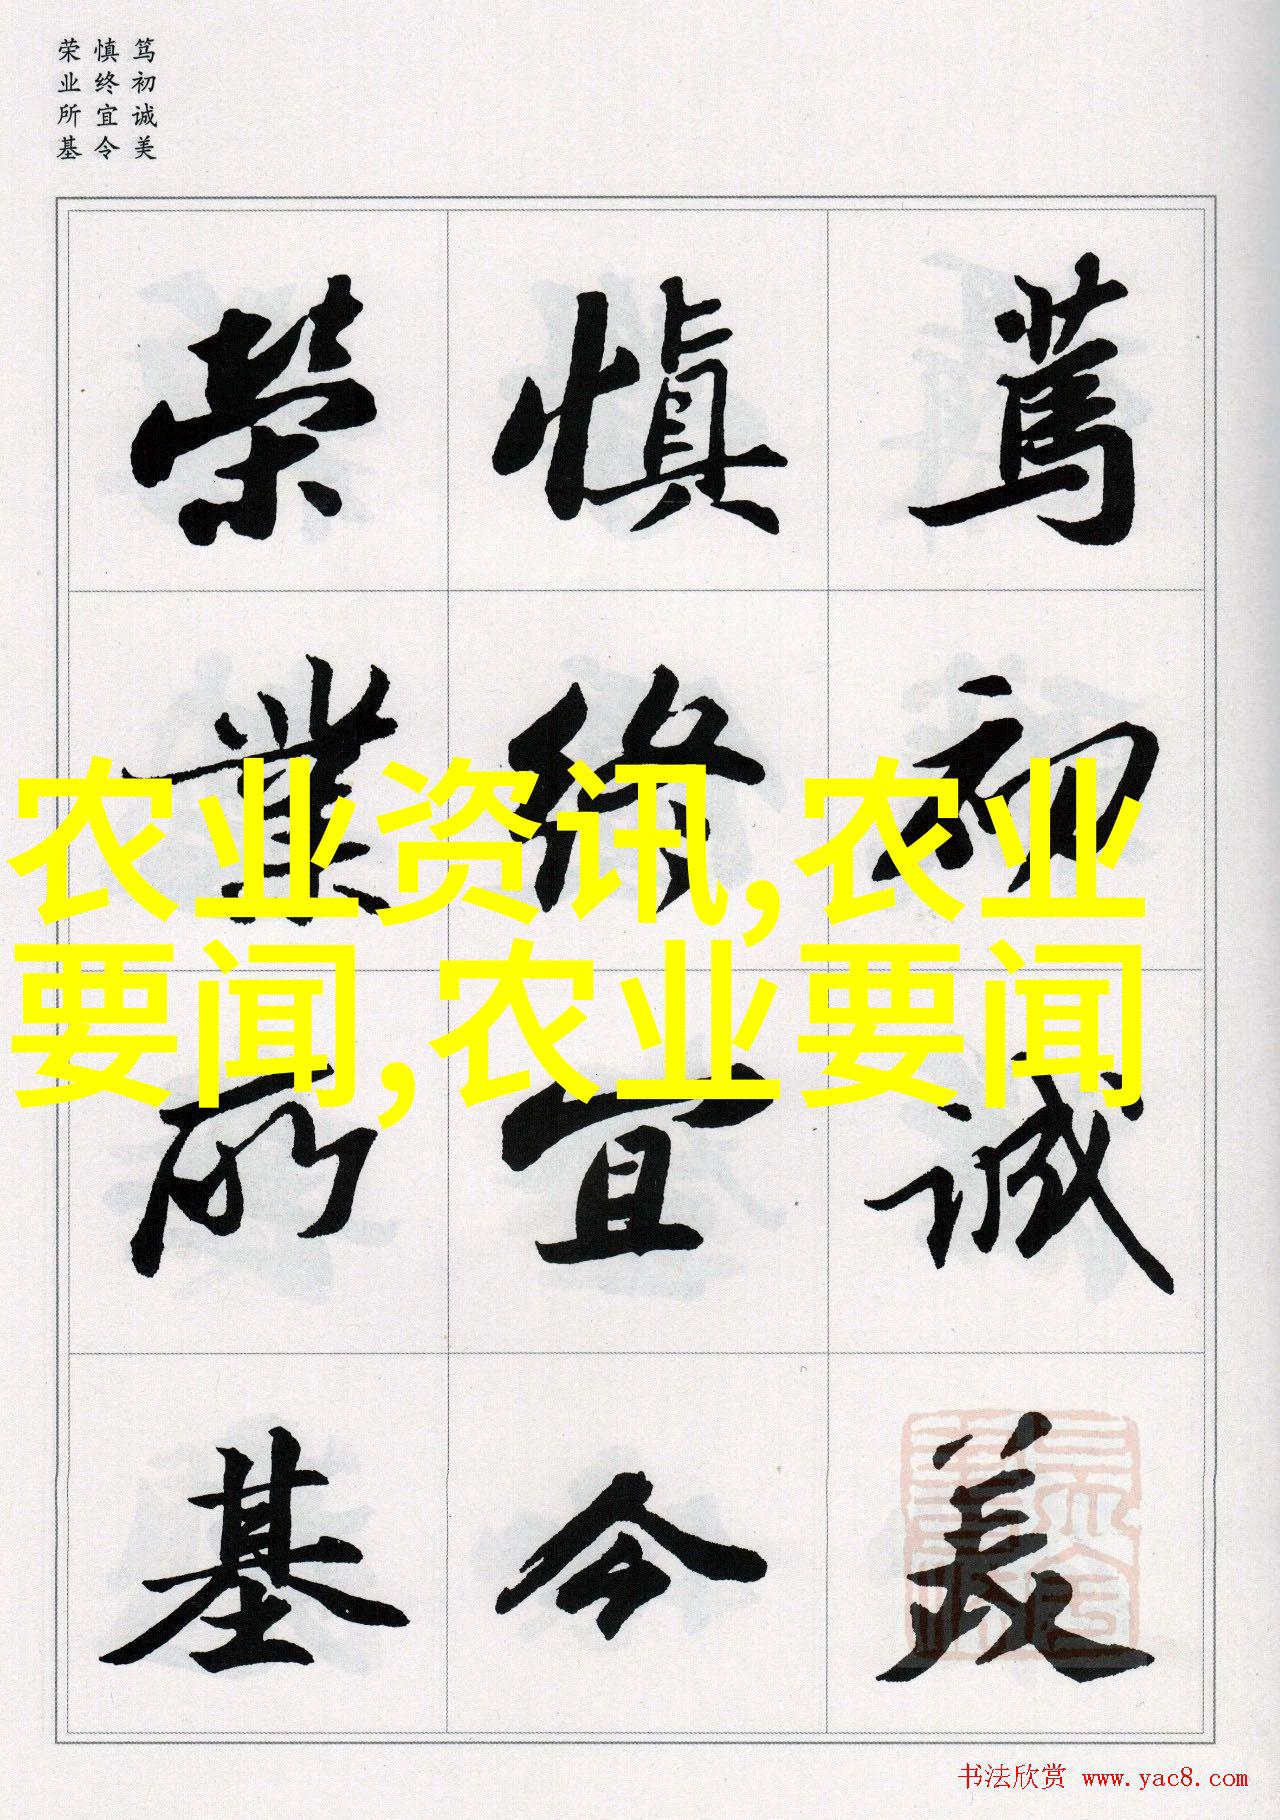 笃初诚美
慎终宜令
荣业所基
篤
初
誠
美
慎
終
宜
令
榮
業
所
基
农业资讯,农业
要闻,农业要闻
书法欣赏 www.yac8.com